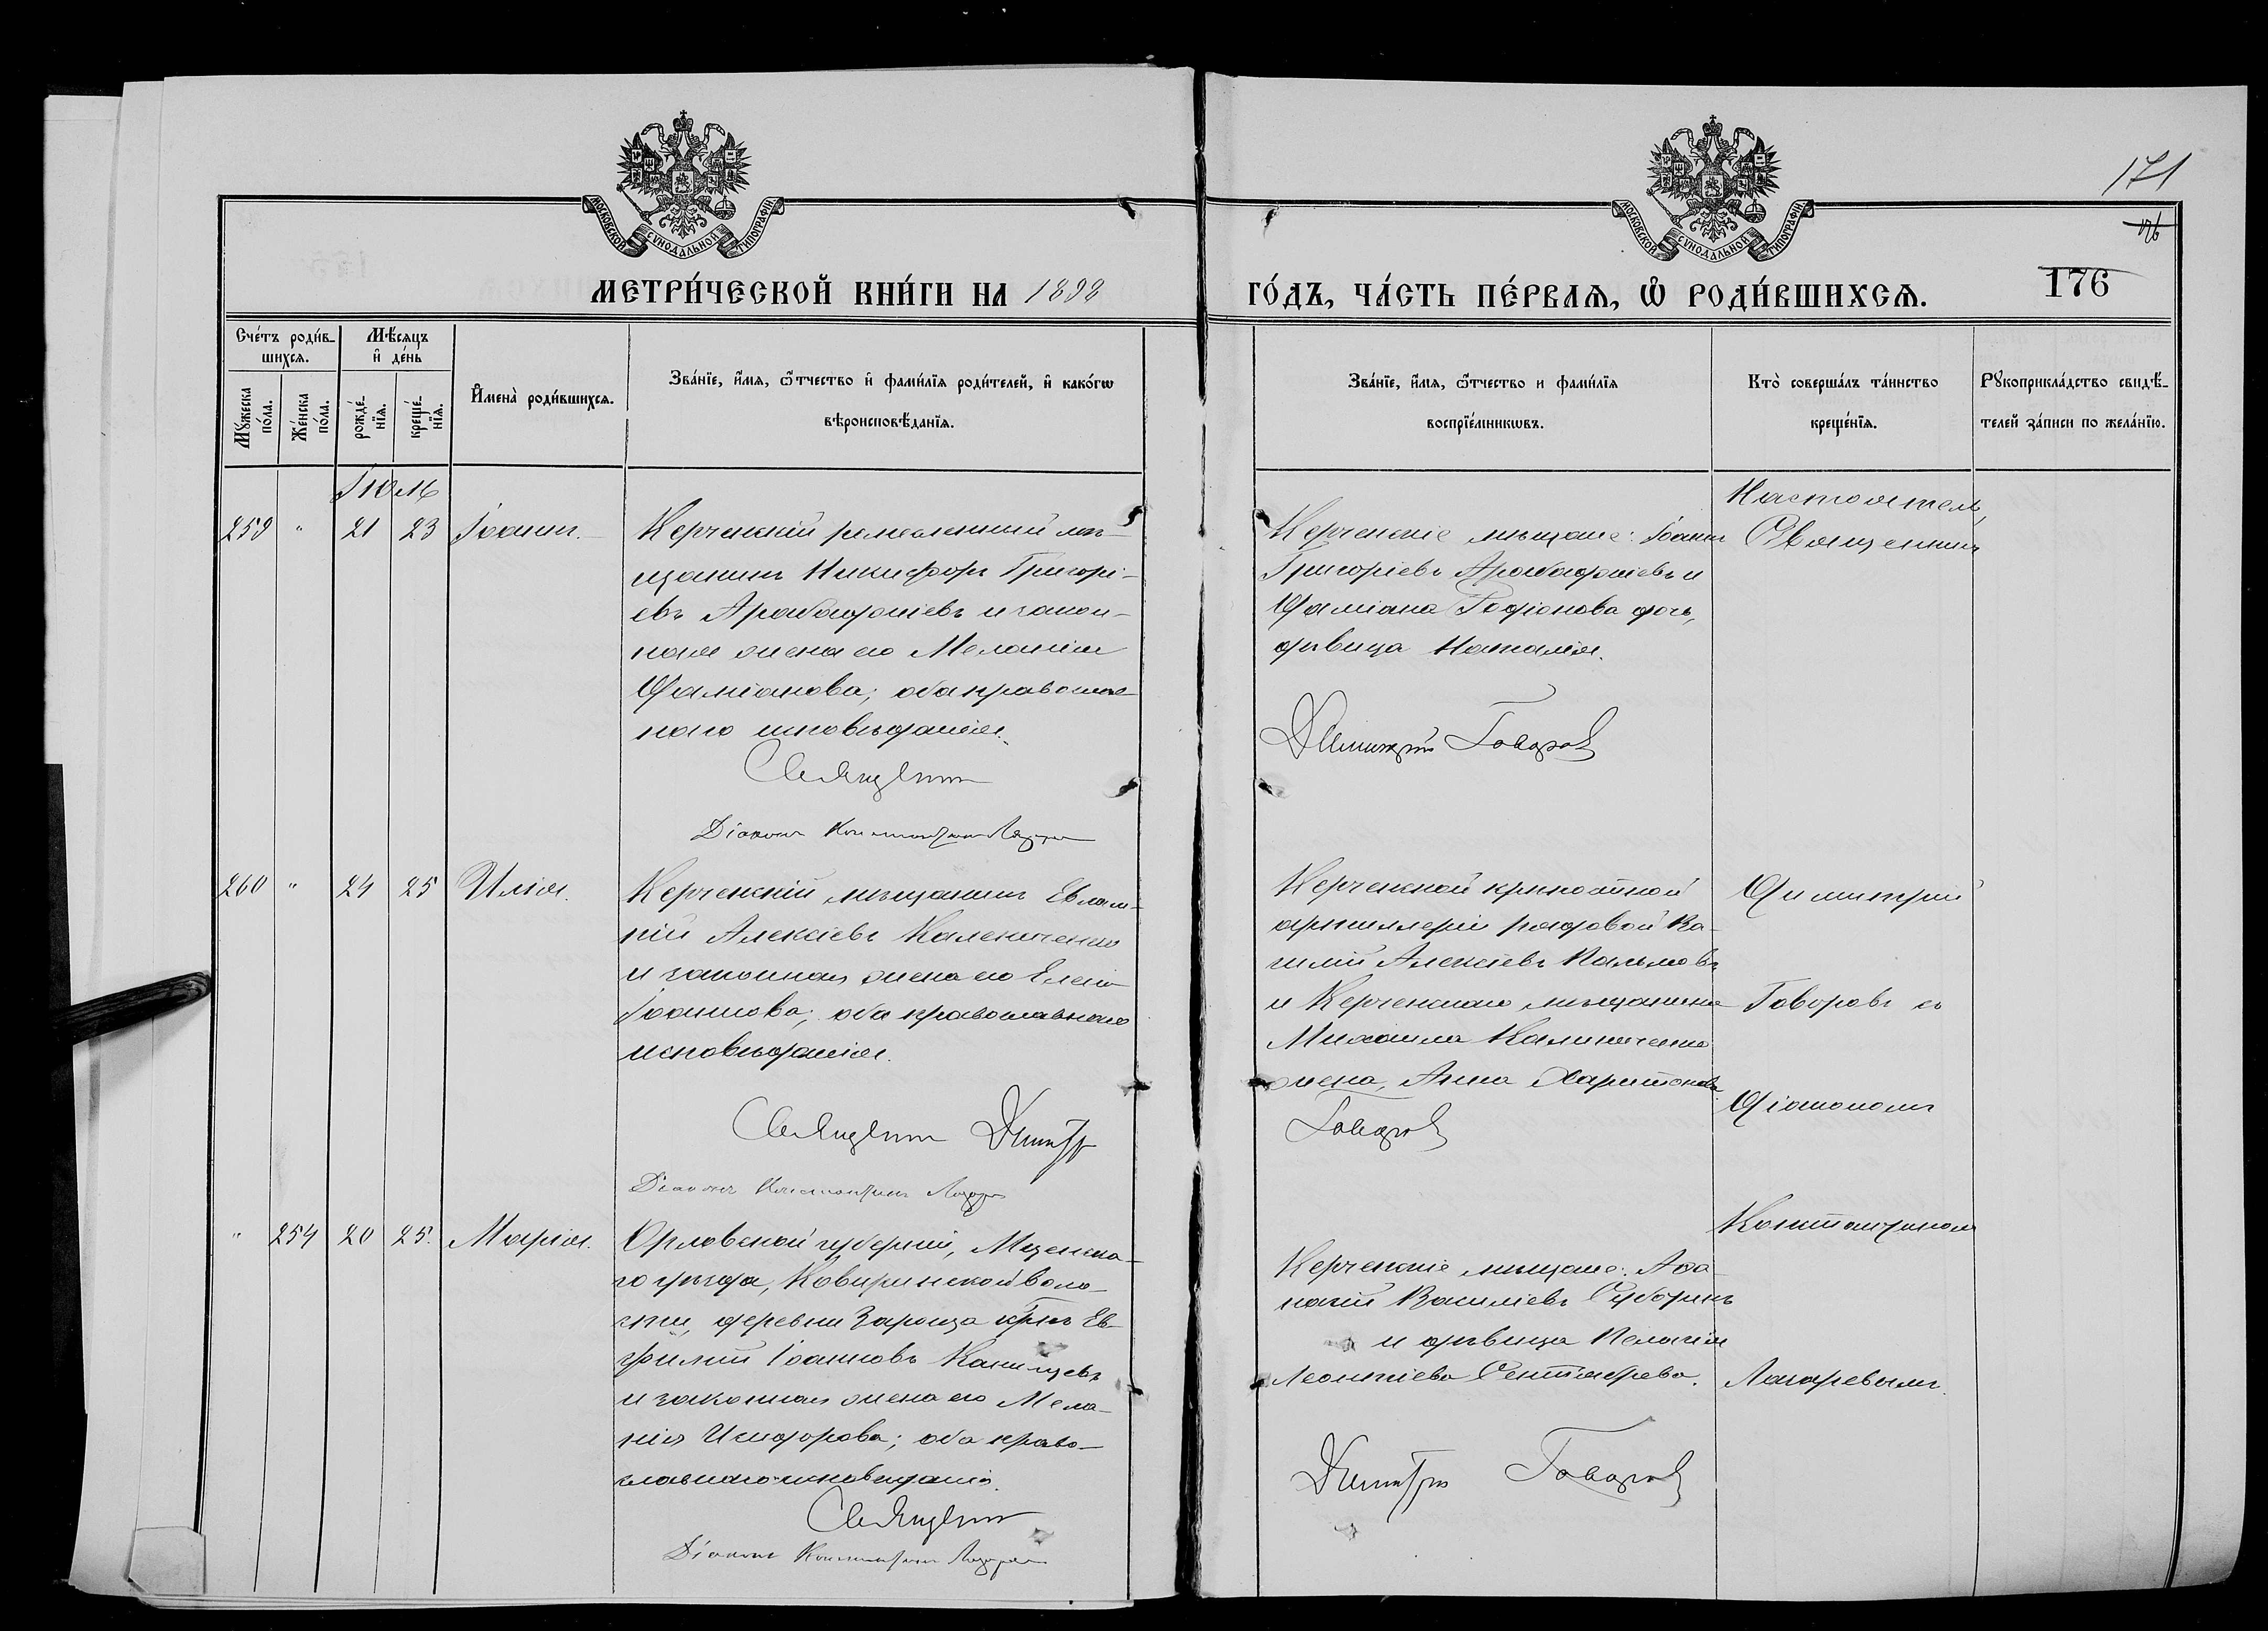 171
176
176
МОСКОВСКОЙ СѴНОДАЛЬНОЙ ТИПОГРАФІИ
МОСКОВСКОЙ СѴНОДАЛЬНОЙ ТИПОГРАФІИ
МЕТРИ́ЧЕСКОЙ КНИ́ГИ НА 1898
ГО́ДЪ, ЧА́СТЬ ПЕ́РВАѦ, Ѡ҆ РОДИ́ВШИХСѦ.
Сче́тъ роди́в-
шихсѧ.
Мѣ́сѧцъ
и҆ де́нь
Мꙋ́жеска по́ла.
Же́нска по́ла.
рожде́-
нїѧ.
креще́-
нїѧ.
И҆мена̀ роди́вшихсѧ.
Зва́нїе, и҆́мѧ, ѻ҆́тчество и҆ фами́лїѧ роди́телей, и҆ како́гѡ
вѣроисповѣ́данїѧ.
Зва́нїе, и҆́мѧ, ѻ҆́тчество и фами́лїѧ
воспрїе́мникѡвъ.
Кто̀ соверша́лъ та́инство
креще́нїѧ.
Рꙋкоприкла́дство свидѣ́-
телей за́писи по жела́нїю.
Іюль
259 " 21 23 Іоаннъ.
Керченскій ремесленный мѣ-
щанинъ Никифоръ Григорі-
евъ и закон-
ная жена его Меланія
Даміанова; оба православ-
наго исповѣданія.
Священникъ
Діаконъ Константинъ Лазарев
Керченскіе мѣщане: Іоаннъ
Григоріевъ и
Даміана дочь,
дѣвица Наталія.
Димитрій Говоров
Настоятель,
Священникъ
260 " 24 25 Илія.
Керченскій мѣщанинъ Евлам-
пій Алексіевъ Калениченко
и законная жена его Елена
Іоаннова; оба православнаго
исповѣданія.
Священник Димитр
Діаконъ Константинъ Лазарев
Керченской крѣпостной
артиллеріи рядовой Ва-
силій Алексіевъ Пальмовъ
и Керченскаго мѣщанина
Михаила Калиниченко
жена, Анна Харитонова.
Говоров
Димитрій
Говоровъ съ
Діакономъ
" 254 20 25. Марія.
Орловской губерніи, Мценска-
го уѣзда, волос-
сти, деревни Зароща крнъ Ев-
фимій Іоанновъ
и законная жена его Мела-
нія Исидорова; оба право-
славнаго исповѣданія.
Священник
Діаконъ Константинъ Лазарев
Керченскіе мѣщане: Афа-
насій Василіевъ
и дѣвица Пелагія
Леонтіева
Димитрій Говоров
Константиномъ
Лазаревымъ.